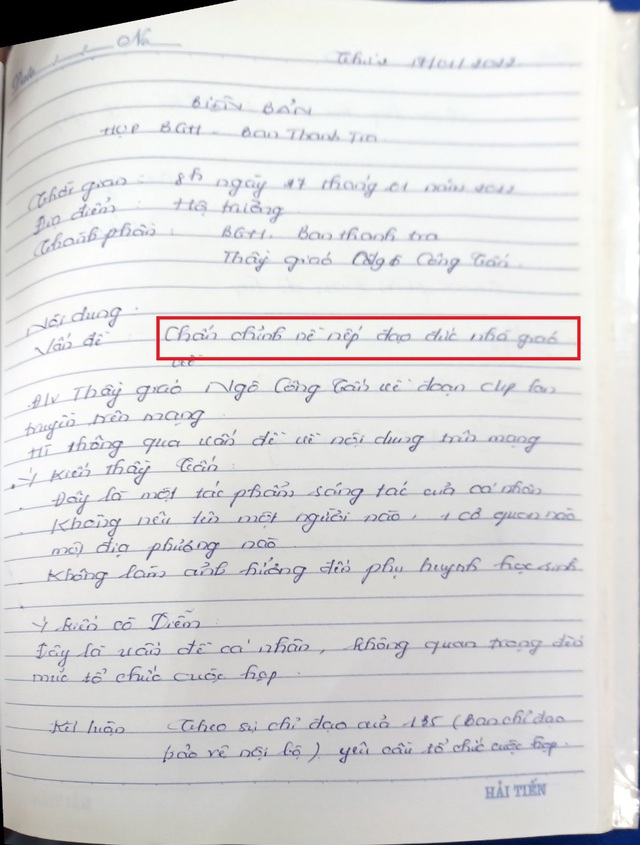 Date / / No
Thứ 2 17/01/2022
BIÊN BẢN
HỌP BGH - Ban Thanh Tra
Thời gian : 8h ngày 17 tháng 01 năm 2022
Địa điểm : Hệ trường
Thành phần : BGH. Ban thanh tra
Thầy giáo Ngô Công Tấn.
Nội dung :
Vấn đề Chấn chỉnh nề nếp đạo đức nhà giáo
về
Đ/v Thầy giáo Ngô Công Tấn về đoạn clip lan
truyền trên mạng
HT thông qua vấn đề về nội dung trên mạng
. Ý kiến thầy Tấn :
. Đây là một tác phẩm sáng tác của cá nhân
. Không nêu tên một người nào, 1 cơ quan nào
một địa phương nào
Không làm ảnh hưởng đến phụ huynh học sinh
Ý kiến cô Diễm
Đây là vấn đề cá nhân, không quan trọng đến
mức tổ chức cuộc họp.
Kết luận Theo sự chỉ đạo của 135 (Ban chỉ đạo
bảo vệ nội bộ) yêu cầu tổ chức cuộc họp.
HẢI TIẾN